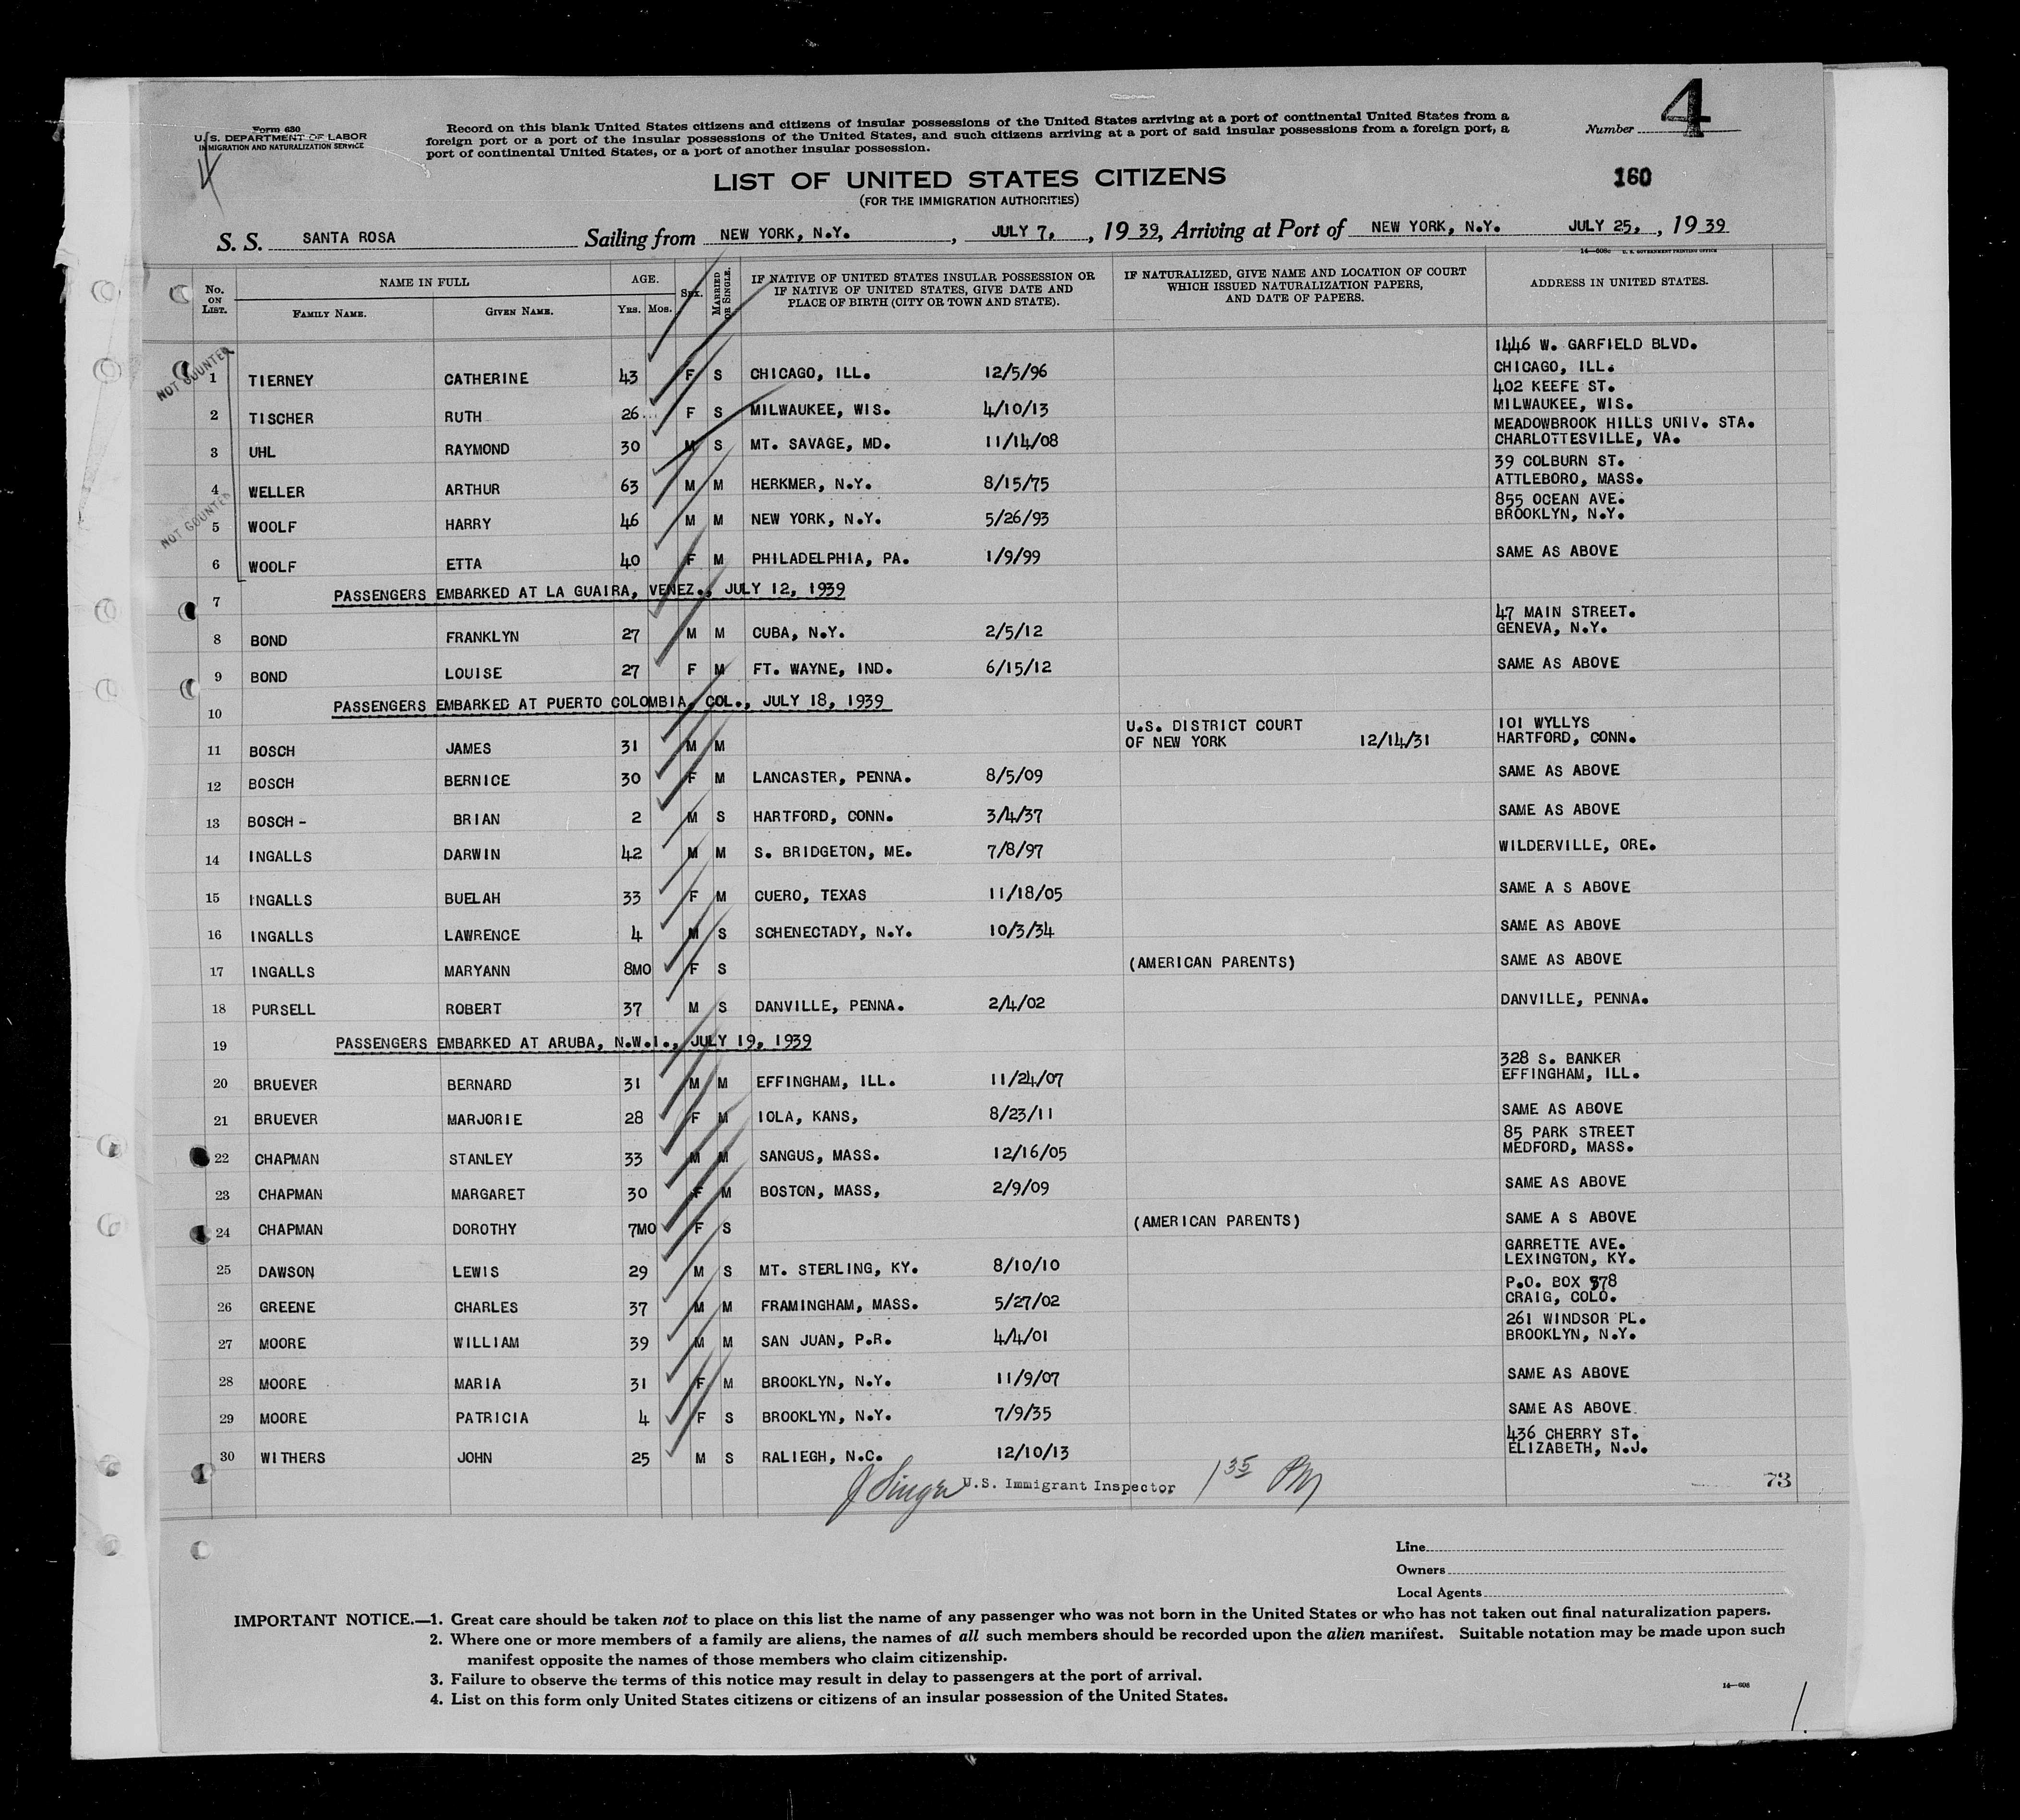 Form 630
U. S. DEPARTMENT OF LABOR
IMMIGRATION AND NATURALIZATION SERVICE
4
Record on this blank United States citizens and citizens of insular possessions of the United States arriving at a port of continental United States from a
foreign port or a port of the insular possessions of the United States, and such citizens arriving at a port of said insular possessions from a foreign port, a
port of continental United States, or a port of another insular possession.
Number 4
160
LIST OF UNITED STATES CITIZENS
(FOR THE IMMIGRATION AUTHORITIES)
S. S. SANTA ROSA Sailing from NEW YORK, N.Y. , JULY 7, , 19 39, Arriving at Port of NEW YORK, N.Y. JULY 25, , 19 39
14—608c U. S. GOVERNMENT PRINTING OFFICE
No. ON LIST. NAME IN FULL FAMILY NAME. GIVEN NAME. AGE. YRS. MOS. SEX. MARRIED OR SINGLE. IF NATIVE OF UNITED STATES INSULAR POSSESSION OR IF NATIVE OF UNITED STATES, GIVE DATE AND PLACE OF BIRTH (CITY OR TOWN AND STATE). IF NATURALIZED, GIVE NAME AND LOCATION OF COURT WHICH ISSUED NATURALIZATION PAPERS, AND DATE OF PAPERS. ADDRESS IN UNITED STATES.
NOT COUNTED
1446 W. GARFIELD BLVD.
1 TIERNEY CATHERINE 43 F S CHICAGO, ILL. 12/5/96 CHICAGO, ILL.
402 KEEFE ST.
2 TISCHER RUTH 26 F S MILWAUKEE, WIS. 4/10/13 MILWAUKEE, WIS.
MEADOWBROOK HILLS UNIV. STA.
3 UHL RAYMOND 30 M S MT. SAVAGE, MD. 11/14/08 CHARLOTTESVILLE, VA.
39 COLBURN ST.
4 WELLER ARTHUR 63 M M HERKMER, N.Y. 8/15/75 ATTLEBORO, MASS.
NOT COUNTED
855 OCEAN AVE.
5 WOOLF HARRY 46 M M NEW YORK, N.Y. 5/26/93 BROOKLYN, N.Y.
6 WOOLF ETTA 40 F M PHILADELPHIA, PA. 1/9/99 SAME AS ABOVE
7 PASSENGERS EMBARKED AT LA GUAIRA, VENEZ., JULY 12, 1939
47 MAIN STREET.
8 BOND FRANKLYN 27 M M CUBA, N.Y. 2/5/12 GENEVA, N.Y.
9 BOND LOUISE 27 F M FT. WAYNE, IND. 6/15/12 SAME AS ABOVE
10 PASSENGERS EMBARKED AT PUERTO COLOMBIA, COL., JULY 18, 1939
U.S. DISTRICT COURT 101 WYLLYS
11 BOSCH JAMES 31 M M OF NEW YORK 12/14/31 HARTFORD, CONN.
12 BOSCH BERNICE 30 F M LANCASTER, PENNA. 8/5/09 SAME AS ABOVE
13 BOSCH - BRIAN 2 M S HARTFORD, CONN. 3/4/37 SAME AS ABOVE
14 INGALLS DARWIN 42 M M S. BRIDGETON, ME. 7/8/97 WILDERVILLE, ORE.
15 INGALLS BUELAH 33 F M CUERO, TEXAS 11/18/05 SAME A S ABOVE
16 INGALLS LAWRENCE 4 M S SCHENECTADY, N.Y. 10/3/34 SAME AS ABOVE
17 INGALLS MARYANN 8MO F S (AMERICAN PARENTS) SAME AS ABOVE
18 PURSELL ROBERT 37 M S DANVILLE, PENNA. 2/4/02 DANVILLE, PENNA.
19 PASSENGERS EMBARKED AT ARUBA, N.W.I., JULY 19, 1939
328 S. BANKER
20 BRUEVER BERNARD 31 M M EFFINGHAM, ILL. 11/24/07 EFFINGHAM, ILL.
21 BRUEVER MARJORIE 28 F M IOLA, KANS, 8/23/11 SAME AS ABOVE
85 PARK STREET
22 CHAPMAN STANLEY 33 M M SANGUS, MASS. 12/16/05 MEDFORD, MASS.
23 CHAPMAN MARGARET 30 F M BOSTON, MASS, 2/9/09 SAME AS ABOVE
24 CHAPMAN DOROTHY 7MO F S (AMERICAN PARENTS) SAME A S ABOVE
GARRETTE AVE.
25 DAWSON LEWIS 29 M S MT. STERLING, KY. 8/10/10 LEXINGTON, KY.
P.O. BOX 878
26 GREENE CHARLES 37 M M FRAMINGHAM, MASS. 5/27/02 CRAIG, COLO.
261 WINDSOR PL.
27 MOORE WILLIAM 39 M M SAN JUAN, P.R. 4/4/01 BROOKLYN, N.Y.
28 MOORE MARIA 31 F M BROOKLYN, N.Y. 11/9/07 SAME AS ABOVE
29 MOORE PATRICIA 4 F S BROOKLYN, N.Y. 7/9/35 SAME AS ABOVE
436 CHERRY ST.
30 WITHERS JOHN 25 M S RALIEGH, N.C. 12/10/13 ELIZABETH, N.J.
J Singer U.S. Immigrant Inspector 1 35 PM
73
Line
Owners
Local Agents
IMPORTANT NOTICE.—1. Great care should be taken not to place on this list the name of any passenger who was not born in the United States or who has not taken out final naturalization papers.
2. Where one or more members of a family are aliens, the names of all such members should be recorded upon the alien manifest. Suitable notation may be made upon such
manifest opposite the names of those members who claim citizenship.
3. Failure to observe the terms of this notice may result in delay to passengers at the port of arrival.
4. List on this form only United States citizens or citizens of an insular possession of the United States.
14—608
1.